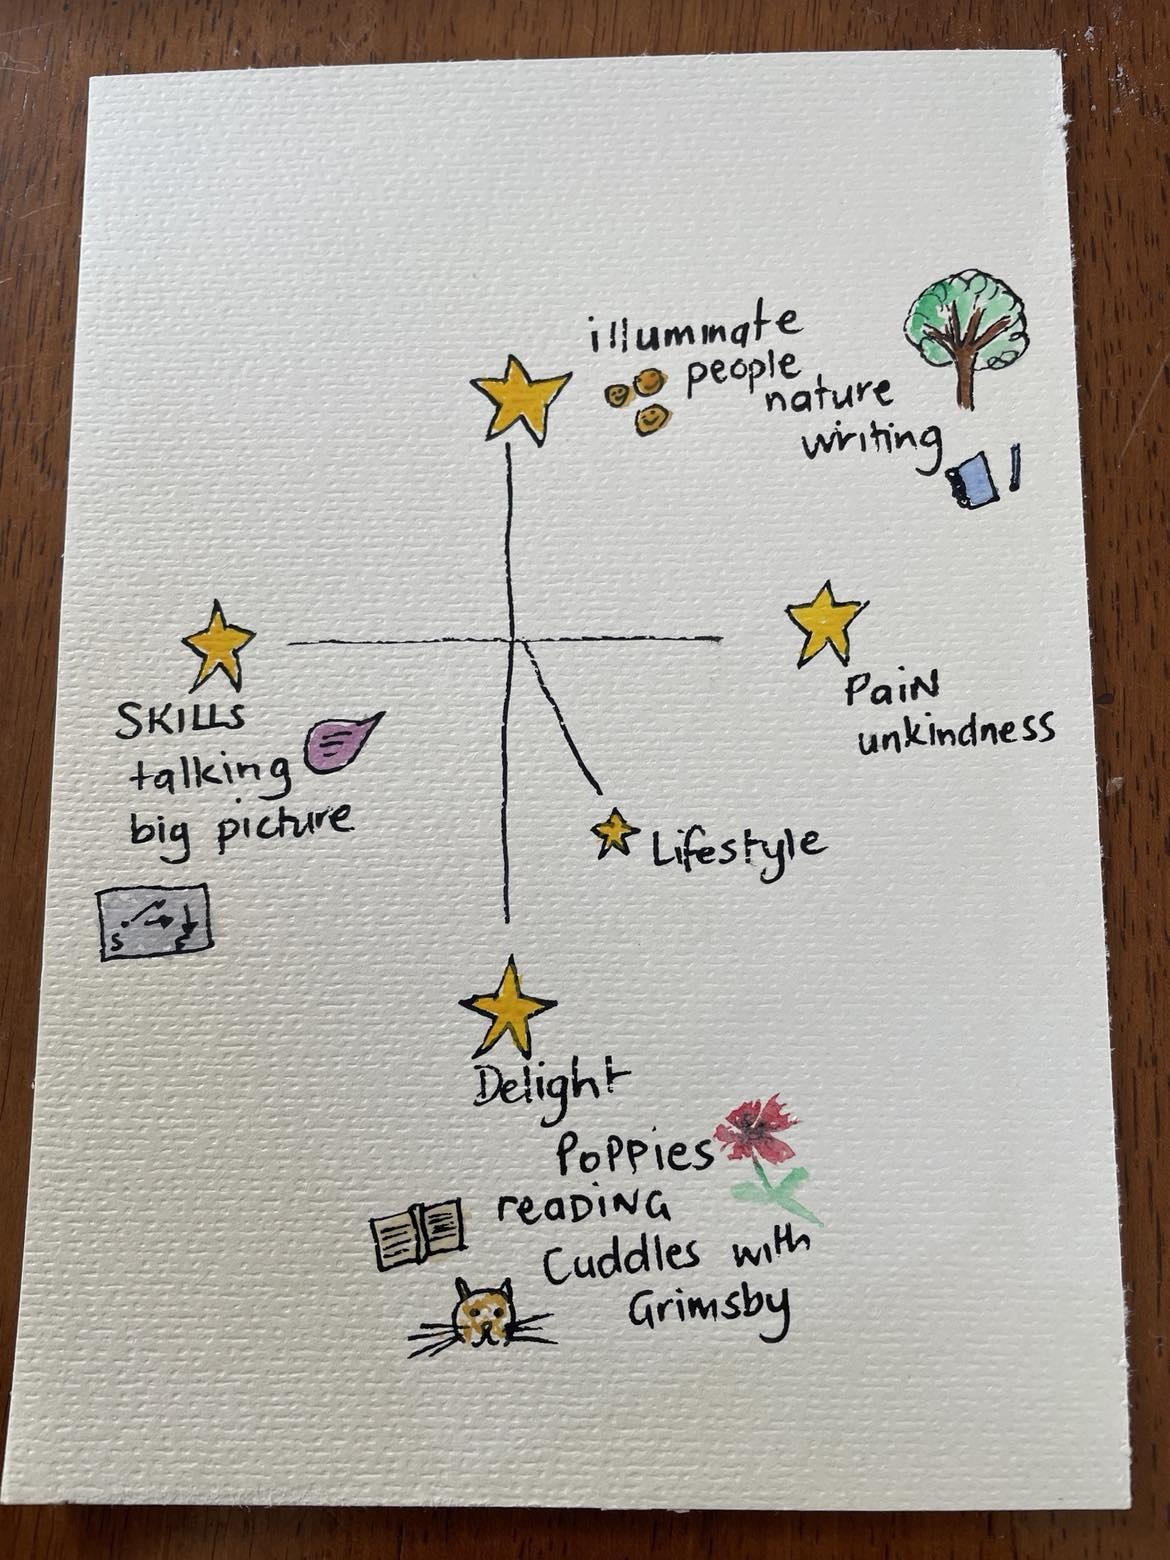 illuminate
people
nature
writing
SKILLS
talking
big picture
S
E
PaiN
unkindness
Lifestyle
Delight
PoPPies
reaDiNG
Cuddles with
Grimsby